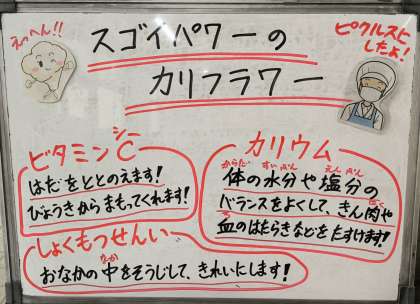 えっへん!!
スゴイパワーの
カリフラワー
ピクルスに
したよ!
ビタミンC
シー
はだをととのえます!
びょうきからまもってくれます!
カリウム
からだ すいぶん えんぶん
体の水分や塩分の
バランスをよくして、きん肉や
にく
ち
血のはたらきなどをたすけます!!
しょくもつせんい
なか
おなかの中をそうじして、きれいにします!